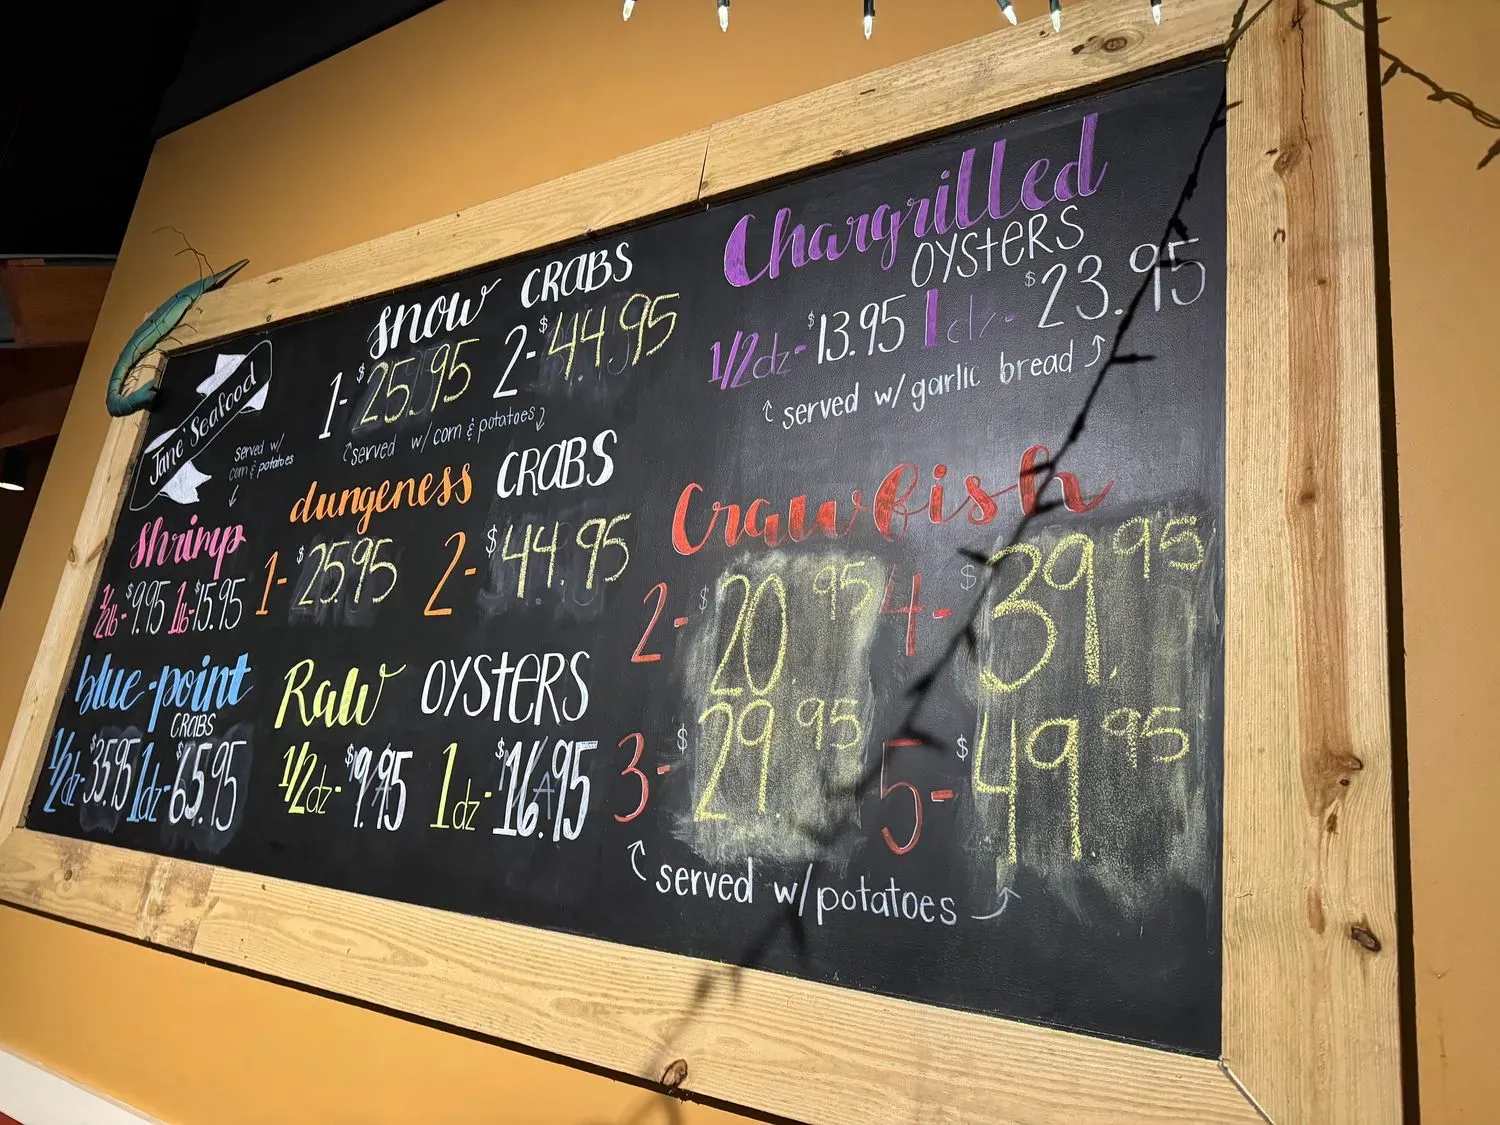 Jane' Seafood
served w/
corn & potatoes
Shrimp
1/2lb-$9.95 1lb-$15.95
blue-point
CRABS
1/2dz-$35.95 1dz-$65.95
snow CRABS
1-$25.95 2-$44.95
served w/ corn & potatoes
dungeness CRABS
1-$25.95 2-$44.95
Raw OYSTERS
1/2dz-$9.95 1dz-$16.95
Chargrilled
OYSTERS
1/2dz-$13.95 1dz-$23.95
served w/ garlic bread
Crawfish
2-$20.95 4-$39.95
3-$29.95 5-$49.95
served w/potatoes